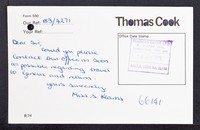 Form 590
Our Ref: B3/4271
Your Ref:
Thomas Cook
Office Date Stamp
Dear Sir,
Could you please
Contact this office as soon
as possible regarding travel
to Greece and return.
Yours sincerely
Miss S.
66141
8/74